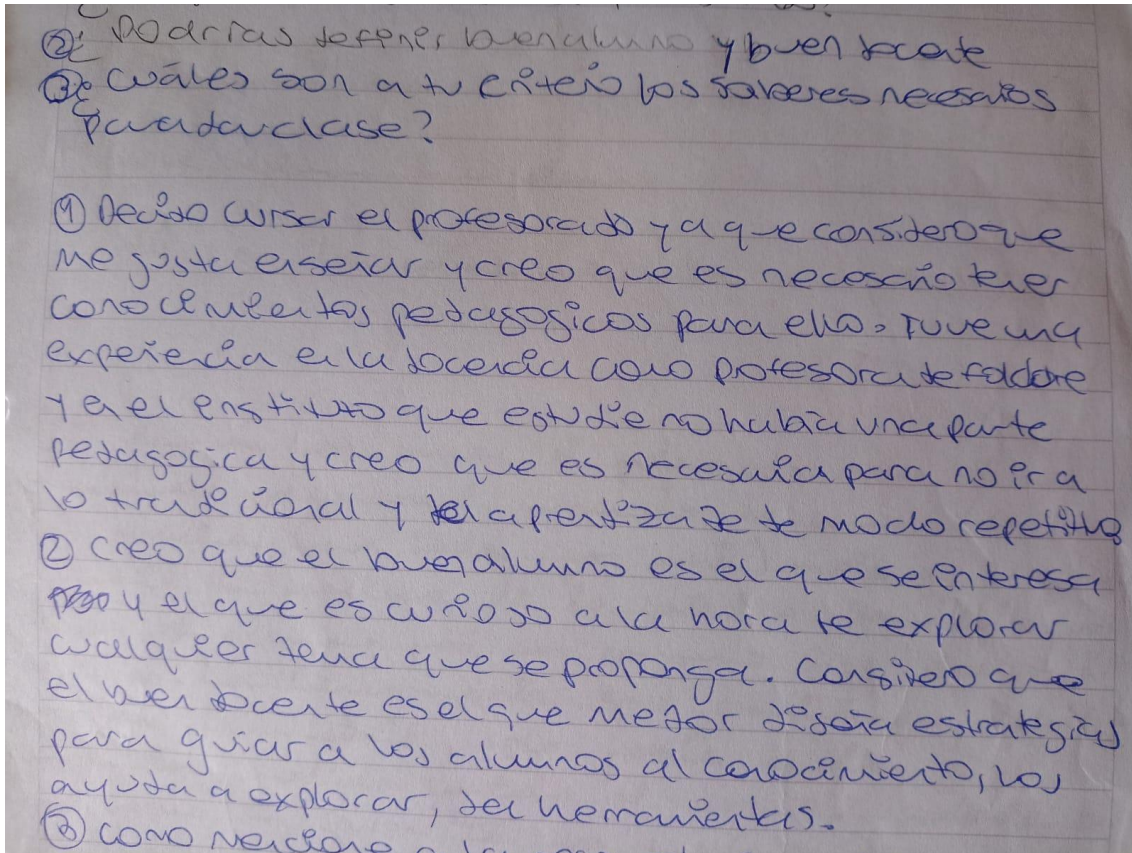 ② ¿Podrías definir buen alumno y buen docente
③ ¿Cuáles son a tu criterio los saberes necesarios
para dar clase?
① Decido cursar el profesorado ya que considero que
me gusta enseñar y creo que es necesario tener
conocimientos pedagogicos para ello. Tuve una
experiencia en la docencia como profesora de folclore
y en el instituto que estudie no había una parte
pedagogica y creo que es necesaria para no ir a
lo tradicional y al aprendizaje de modo repetitivo
② Creo que el buen alumno es el que se interesa
y el que es curioso a la hora de explorar
cualquier tema que se proponga. Considero que
el buen docente es el que mejor diseña estrategias
para guiar a los alumnos al conocimiento, los
ayuda a explorar, da herramientas.
③ Como menciono